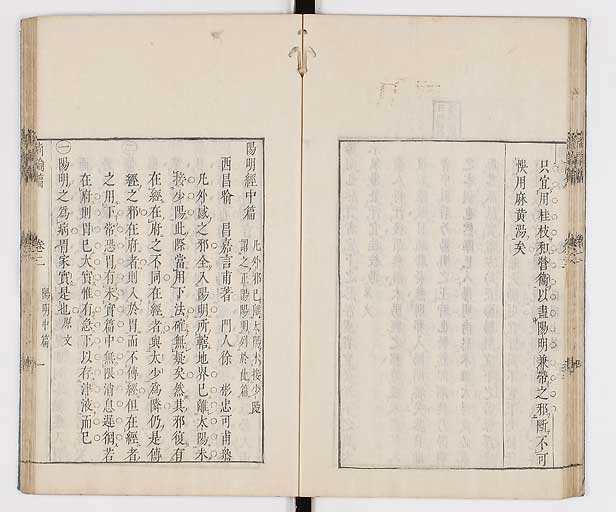 只宜用桂枝和營衛以盡陽明兼帶之邪斷不可
悞用麻黃湯矣
陽明經中篇
凡外邪已離太陽未接少陽
謂之正陽陽明列於此篇
西昌喻 昌嘉言甫著 門人徐 彬忠可甫
凡外感之邪全入陽明所轄地界已離太陽未
接少陽此際當用下法確無疑矣然其邪復有
在經在府之不同在經者與太少為隣仍是傳
經之邪在府者則入於胃而不傳經但在經者
之用下常恐胃有未實篇中無限消息遲徊若
在府則胃已大實惟有急下以存津液而已
一 陽明之為病胃家實是也原文
尚論篇 卷二 陽明中篇 一